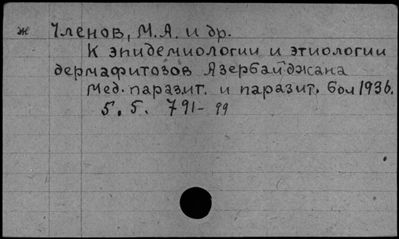 ж Членов, М.А. и др.
К эпидемиологии и этиологии
дермафитозов Азербайджана
Мед. паразит. и паразит. бол 1936.
5. 5. 791-99